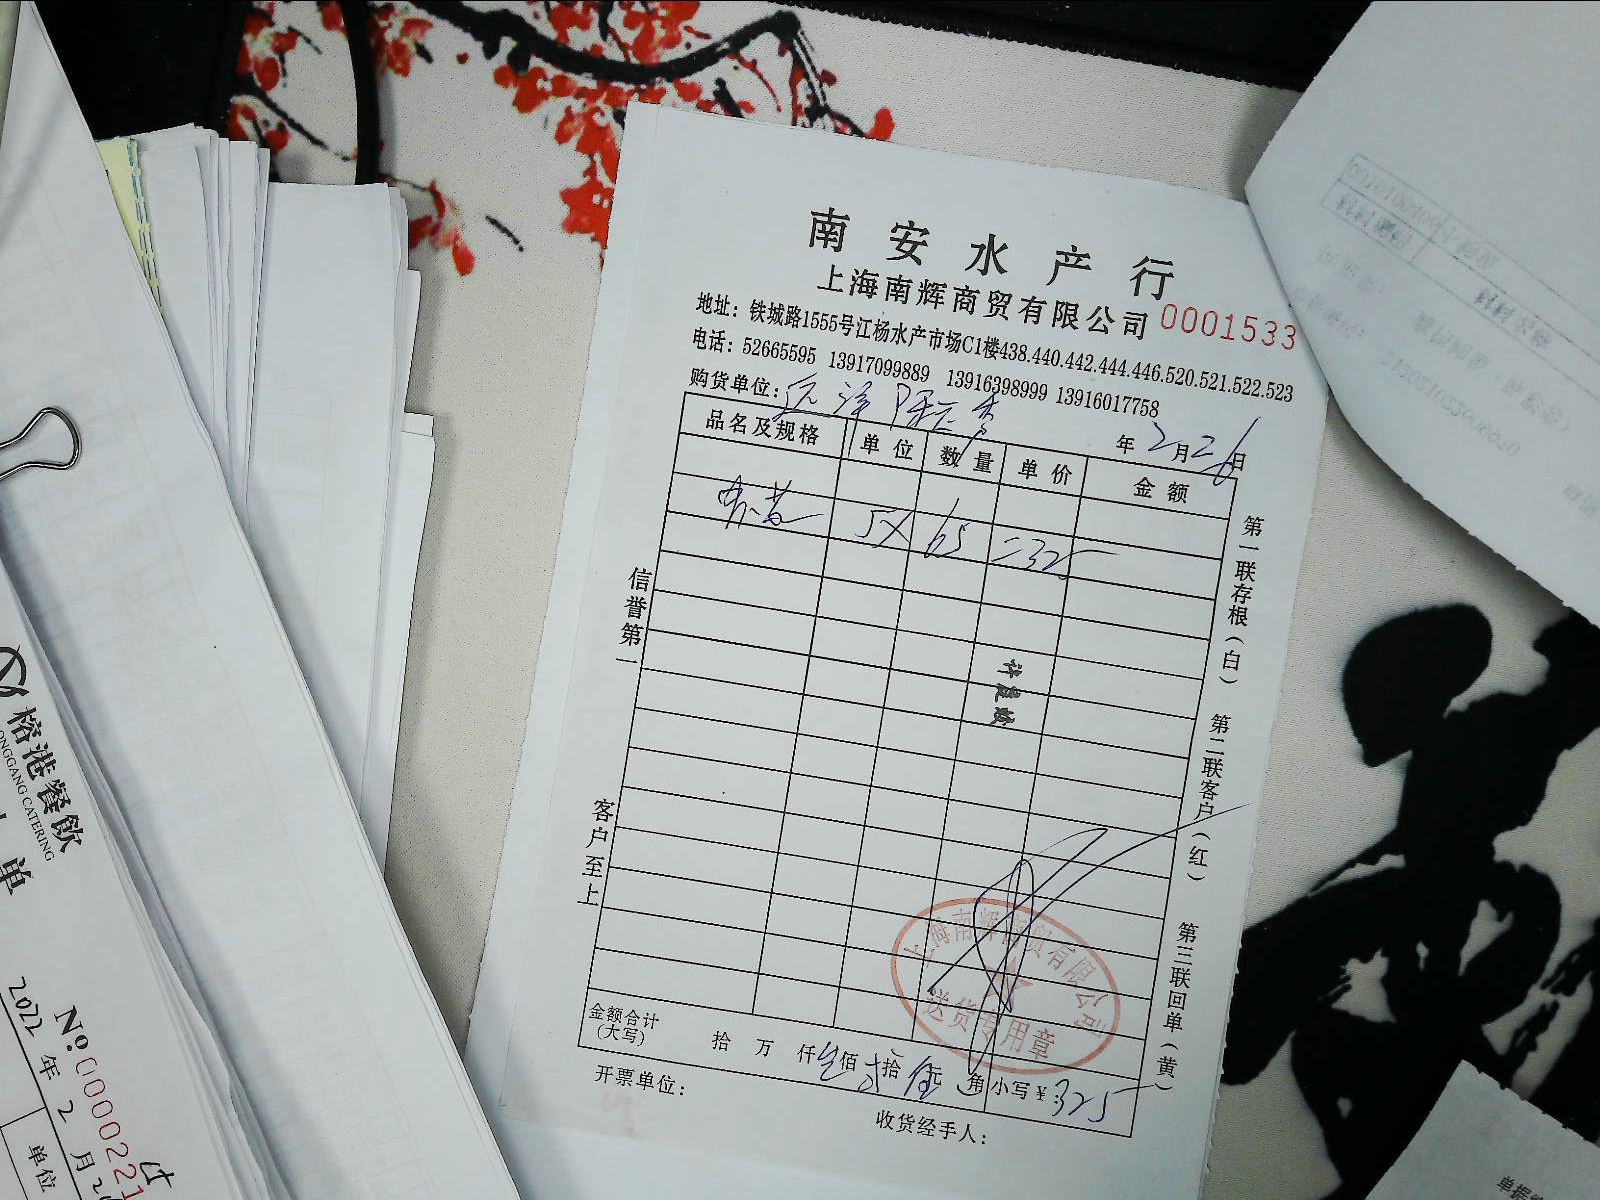 南安水产行
上海南辉商贸有限公司 0001533
地址：铁城路1555号江杨水产市场C1楼438.440.442.444.446.520.521.522.523
电话：52665595 13917099889 13916398999 13916017758
购货单位：
年2月26日
品名及规格 单位 数量 单价 金额
5× 65 =325
信誉第一
客户至上
第一联存根（白）
第二联客户（红）
第三联回单（黄）
上海南辉商贸有限公司
送货专用章
金额合计（大写） 拾 万 仟 叁佰 贰拾 伍元 角 小写￥:325
开票单位：
收货经手人：
榕港餐飲
RONGGANG CATERING
单
№:0000221
2022年2月
单位